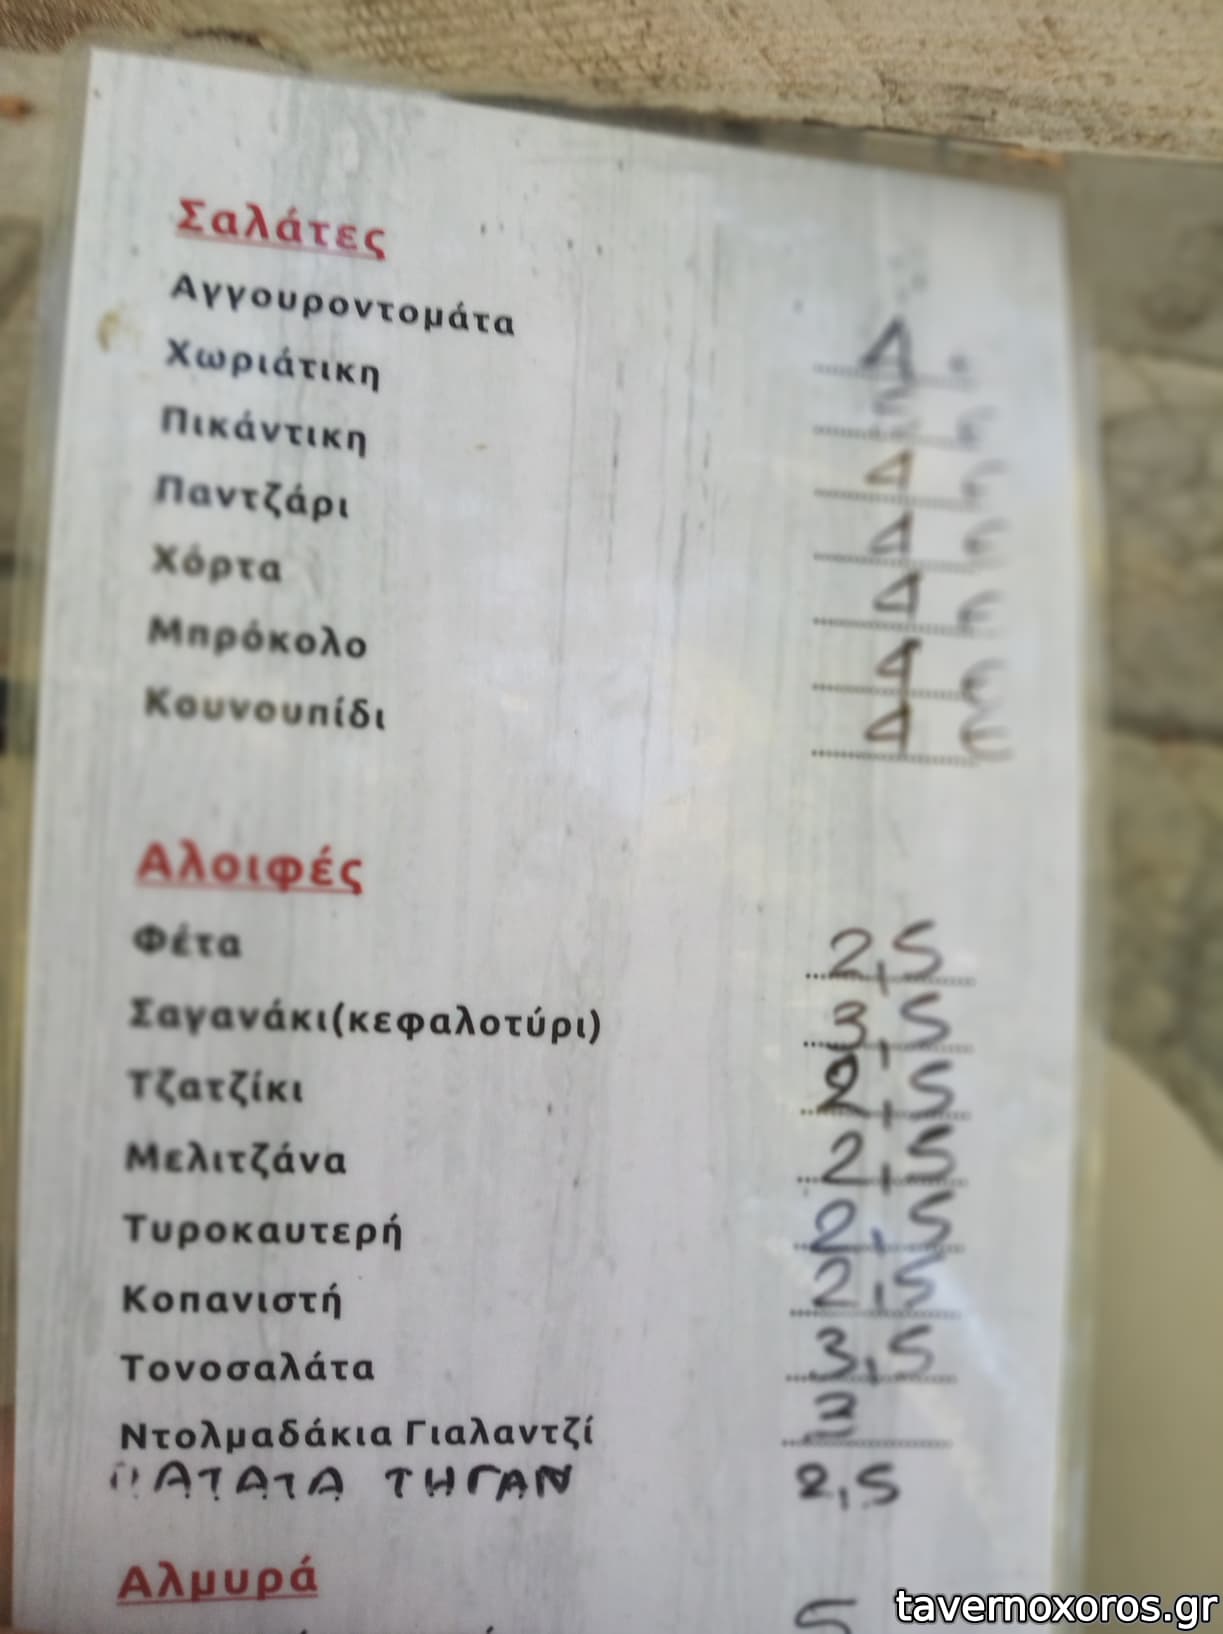 Σαλάτες
Αγγουροντομάτα 4
Χωριάτικη €
Πικάντικη 4 €
Παντζάρι 4 €
Χόρτα 4 €
Μπρόκολο 4 €
Κουνουπίδι 4 €
Αλοιφές
Φέτα 2,5
Σαγανάκι(κεφαλοτύρι) 3,5
Τζατζίκι 2,5
Μελιτζάνα 2,5
Τυροκαυτερή 2,5
Κοπανιστή 2,5
Τονοσαλάτα 3,5
Ντολμαδάκια Γιαλαντζί
ΠΑΤΑΤΑ ΤΗΓΑΝ 2,5
Αλμυρά
5
tavernoxoros.gr